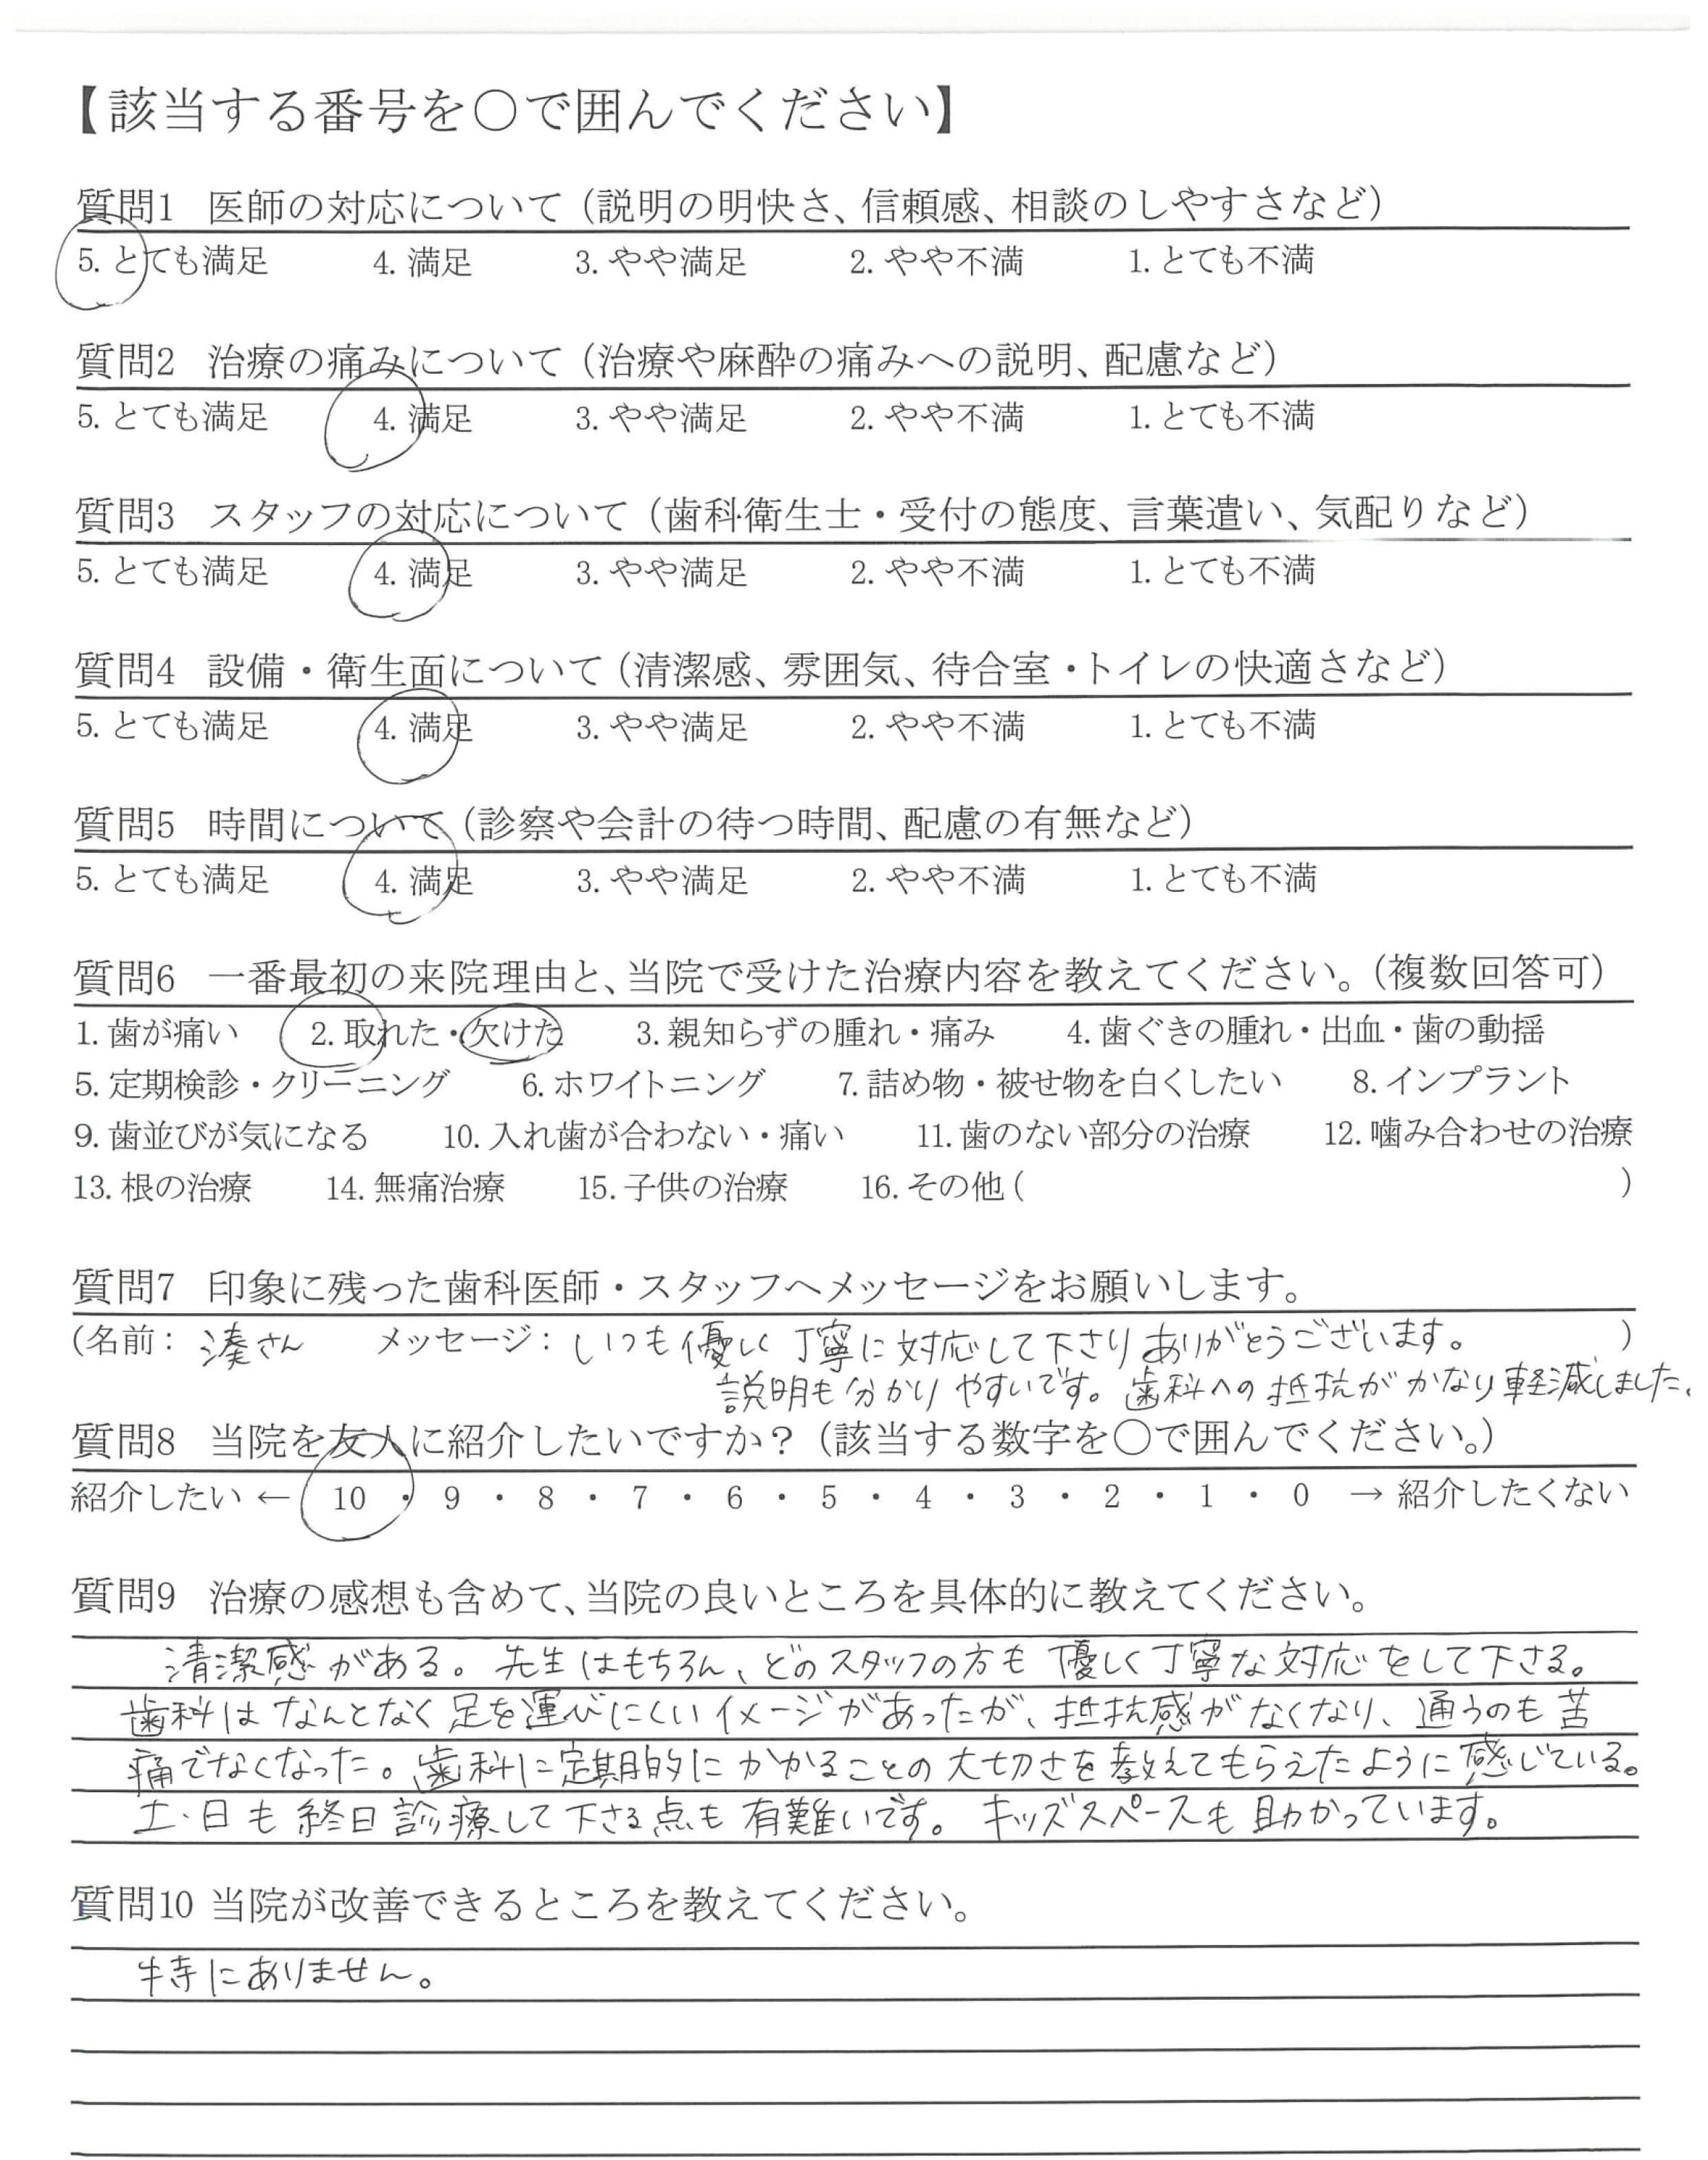 【該当する番号を○で囲んでください】
質問1 医師の対応について（説明の明快さ、信頼感、相談のしやすさなど）
5. とても満足 4. 満足 3. やや満足 2. やや不満 1. とても不満
質問2 治療の痛みについて（治療や麻酔の痛みへの説明、配慮など）
5. とても満足 4. 満足 3. やや満足 2. やや不満 1. とても不満
質問3 スタッフの対応について（歯科衛生士・受付の態度、言葉遣い、気配りなど）
5. とても満足 4. 満足 3. やや満足 2. やや不満 1. とても不満
質問4 設備・衛生面について（清潔感、雰囲気、待合室・トイレの快適さなど）
5. とても満足 4. 満足 3. やや満足 2. やや不満 1. とても不満
質問5 時間について（診察や会計の待つ時間、配慮の有無など）
5. とても満足 4. 満足 3. やや満足 2. やや不満 1. とても不満
質問6 一番最初の来院理由と、当院で受けた治療内容を教えてください。（複数回答可）
1. 歯が痛い 2. 取れた・欠けた 3. 親知らずの腫れ・痛み 4. 歯ぐきの腫れ・出血・歯の動揺
5. 定期検診・クリーニング 6. ホワイトニング 7. 詰め物・被せ物を白くしたい 8. インプラント
9. 歯並びが気になる 10. 入れ歯が合わない・痛い 11. 歯のない部分の治療 12. 噛み合わせの治療
13. 根の治療 14. 無痛治療 15. 子供の治療 16. その他（ ）
質問7 印象に残った歯科医師・スタッフへメッセージをお願いします。
（名前：湊さん メッセージ：いつも優しく丁寧に対応して下さりありがとうございます。 ）
説明も分かりやすいです。歯科への抵抗がかなり軽減しました。
質問8 当院を友人に紹介したいですか？（該当する数字を○で囲んでください。）
紹介したい ← 10 ・ 9 ・ 8 ・ 7 ・ 6 ・ 5 ・ 4 ・ 3 ・ 2 ・ 1 ・ 0 → 紹介したくない
質問9 治療の感想も含めて、当院の良いところを具体的に教えてください。
清潔感がある。先生はもちろん、どのスタッフの方も優しく丁寧な対応をして下さる。
歯科はなんとなく足を運びにくいイメージがあったが、抵抗感がなくなり、通うのも苦
痛でなくなった。歯科に定期的にかかることの大切さを教えてもらえたように感じている。
土・日も終日診療して下さる点も有難いです。キッズスペースも助かっています。
質問10 当院が改善できるところを教えてください。
特にありません。